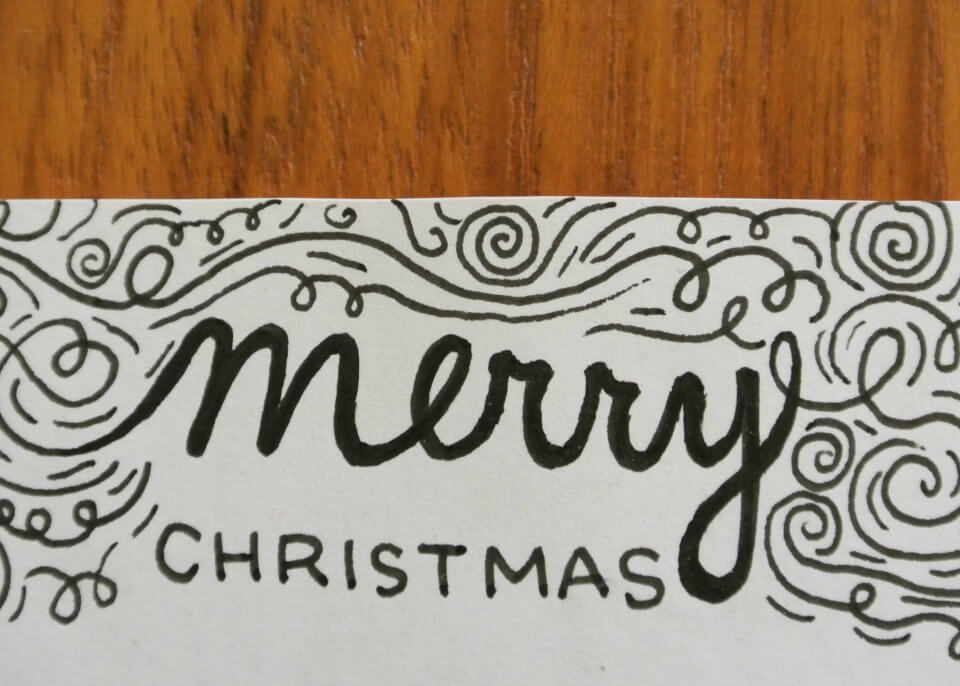 merry
CHRISTMAS